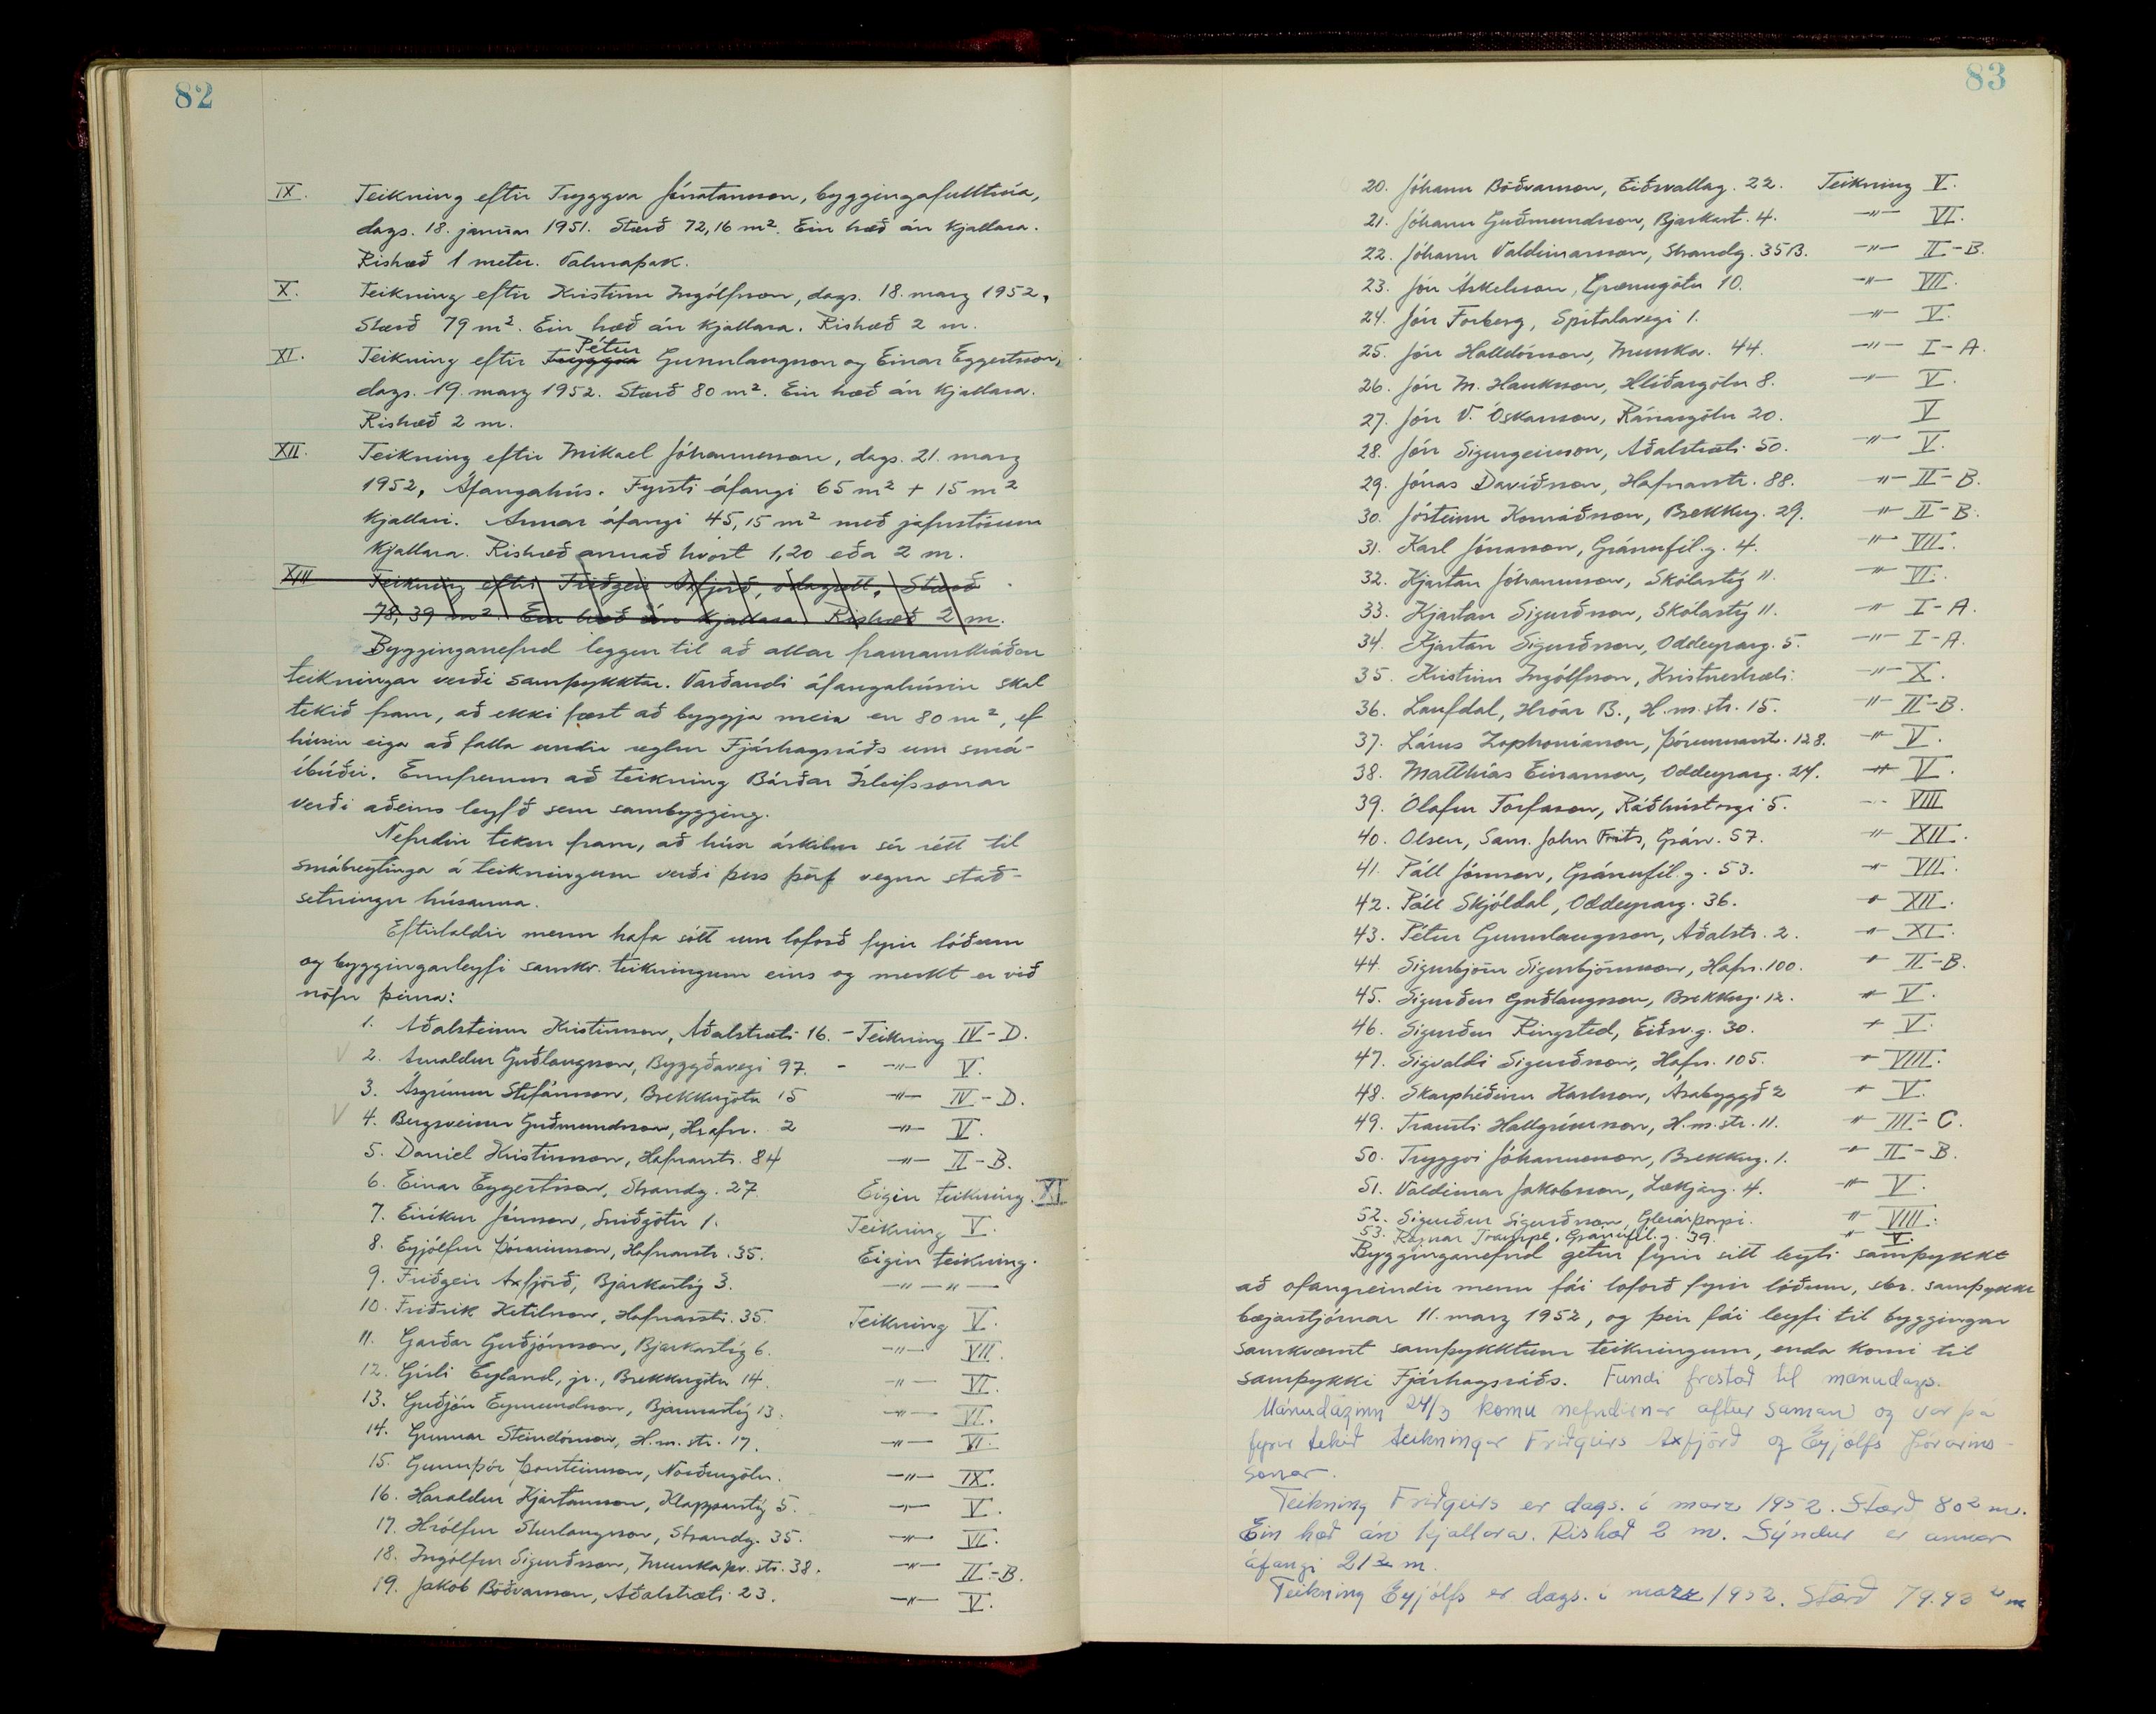 82
IX. Teikning eftir Tryggva Jónatansson, byggingafulltrúa,
dags. 18. janúar 1951. Stærð 72,16 m². Ein hæð án kjallara.
Rishæð 1 meter. Valmaþak.
X. Teikning eftir Kristinn Ingólfsson, dags. 18. marz 1952.
Stærð 79 m². Ein hæð án kjallara. Rishæð 2 m.
Pétur
XI. Teikning eftir Tryggva Gunnlaugsson og Einar Eggertsson,
dags. 19. marz 1952. Stærð 80 m². Ein hæð án kjallara.
Rishæð 2 m.
XII. Teikning eftir Mikael Jóhannesson, dags. 21. marz
1952. Áfangahús. Fyrsti áfangi 65 m² + 15 m²
kjallari. Annar áfangi 45,15 m² með jafnstórum
kjallara. Rishæð annað hvort 1,20 eða 2 m.
XIII Teikning eftir Friðgeir Axfjörð, ódagsett. Stærð
78,39 m². Ein hæð án kjallara. Rishæð 2 m.
Bygginganefnd leggur til að allar framanskráðar
teikningar verði samþykktar. Varðandi áfangahúsin skal
tekið fram, að ekki fæst að byggja meira en 80 m², ef
húsin eiga að falla undir reglur Fjárhagsráðs um smá-
íbúðir. Ennfremur að teikning Bárðar Ísleifssonar
verði aðeins leyfð sem sambygging.
Nefndin tekur fram, að hún áskilur sér rétt til
smábreytinga á teikningum verði þess þörf vegna stað-
setningu húsanna.
Eftirtaldir menn hafa sótt um loforð fyrir lóðum
og byggingarleyfi samkv. teikningum eins og merkt er við
nöfn þeirra:
1. Aðalsteinn Kristinsson, Aðalstræti 16. - Teikning IV-D.
V 2. Arnaldur Guðlaugsson, Byggðavegi 97. - -"- V.
3. Ásgrímur Stefánsson, Brekkugötu 15 -"- IV-D.
V 4. Bergsveinn Guðmundsson, Hrafn. 2 -"- V.
5. Daníel Kristinsson, Hafnarstr. 84 -"- II-B.
6. Einar Eggertsson, Strandg. 27. Eigin teikning. XI
7. Eiríkur Jónsson, Sniðgötu 1. Teikning V.
8. Eyjólfur Þórarinsson, Hafnarstr. 35. Eigin teikning.
9. Friðgeir Axfjörð, Bjarkastíg 3. -"-"-
10. Friðrik Ketilsson, Hafnarstr. 35. Teikning V.
11. Garðar Guðjónsson, Bjarkastíg 6. -"- VII.
12. Gísli Eyland, jr., Brekkugötu 14. -"- VI.
13. Guðjón Eymundsson, Bjarmastíg 13. -"- VI.
14. Gunnar Steindórsson, H.m.str. 17. -"- VI.
15. Gunnþór Þorsteinsson, Norðurgötu. -"- IX.
16. Haraldur Kjartansson, Klapparstíg 5. -"- V.
17. Hrólfur Sturlaugsson, Strandg. 35. -"- VI.
18. Ingólfur Sigurðsson, Munkaþv.str. 38. -"- II-B.
19. Jakob Böðvarsson, Aðalstræti 23. -"- V.
83
20. Jóhann Böðvarsson, Eiðsvallag. 22. Teikning V.
21. Jóhann Guðmundsson, Bjarkast. 4. -"- VI.
22. Jóhann Valdimarsson, Strandg. 35B. -"- II-B.
23. Jón Áskelsson, Grænugötu 10. -"- VII.
24. Jón Forberg, Spítalavegi 1. -"- V.
25. Jón Halldórsson, Munka. 44. -"- I-A.
26. Jón M. Hauksson, Hlíðargötu 8. -"- V.
27. Jón V. Óskarsson, Ránargötu 20. V
28. Jón Sigurgeirsson, Aðalstræti 50. -"- V.
29. Jónas Davíðsson, Hafnarstr. 88. -"- II-B.
30. Jósteinn Konráðsson, Brekkug. 29. -"- II-B.
31. Karl Jónasson, Gránufél.g. 4. -"- VII.
32. Kjartan Jóhannsson, Skólastíg 11. -"- VI.
33. Kjartan Sigurðsson, Skólastíg 11. -"- I-A.
34. Kjartan Sigurðsson, Oddeyrarg. 5. -"- I-A.
35. Kristinn Ingólfsson, Kristnestræti. -"- X.
36. Laufdal, Hróar B., H.m.str. 15. -"- II-B.
37. Lárus Zophoníasson, Þórunnarst. 128. -"- V.
38. Matthías Einarsson, Oddeyrarg. 24. -"- V.
39. Ólafur Torfason, Ráðhústorgi 5. -"- VIII
40. Olsen, Sam. John Frits, Grán. 57. -"- XII.
41. Páll Jónsson, Gránufél.g. 53. -"- VII.
42. Páll Skjóldal, Oddeyrarg. 36. -"- XII.
43. Pétur Gunnlaugsson, Aðalstr. 2. -"- XI.
44. Sigurbjörn Sigurbjörnsson, Hafn. 100. -"- II-B.
45. Sigurður Guðlaugsson, Brekkug. 12. -"- V.
46. Sigurður Ringsted, Eiðsv.g. 30. -"- V.
47. Sigvaldi Sigurðsson, Hafn. 105. -"- VIII.
48. Skarphéðinn Karlsson, Ásabyggð 2 -"- V.
49. Trausti Hallgrímsson, H.m.str. 11. -"- III-C.
50. Tryggvi Jóhannesson, Brekkug. 1. -"- II-B.
51. Valdimar Jakobsson, Lækjarg. 4. -"- V.
52. Sigurður Sigurðsson, Glerárþorpi. -"- VIII.
53. Ragnar Trampe, Gránufél.g. 39. -"- V.
Bygginganefnd getur fyrir sitt leyti samþykkt
að ofangreindir menn fái loforð fyrir lóðum, sbr. samþykkt
bæjarstjórnar 11. marz 1952, og þeir fái leyfi til byggingar
samkvæmt samþykktum teikningum, enda komi til
samþykki Fjárhagsráðs. Fundi frestað til mánudags.
Mánudaginn 24/3 komu nefndirnar aftur saman og var þá
fyrir tekið teikningar Friðgeirs Axfjörð og Eyjólfs Þórarins-
sonar.
Teikning Friðgeirs er dags. í marz 1952. Stærð 80² m.
Ein hæð án kjallara. Rishæð 2 m. Sýndur er annar
áfangi 21² m.
Teikning Eyjólfs er dags. í marz 1952. Stærð 79.93 ² m